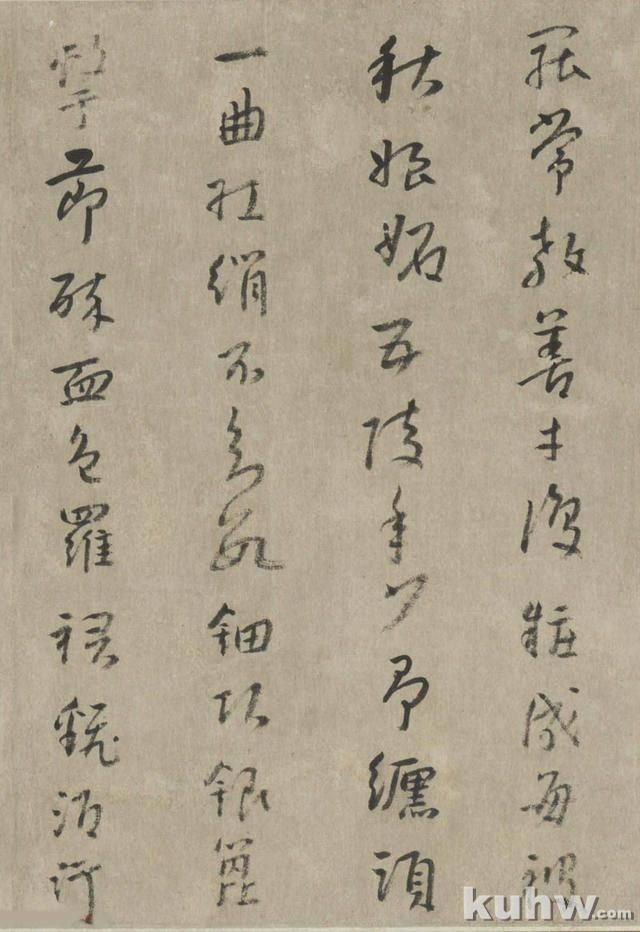 罷常教善才粧成每被
秋娘妬五陵年少爭纏頭
一曲紅綃不知數鈿頭銀篦
擊節碎血色羅裙翻酒汙
kuhw.com